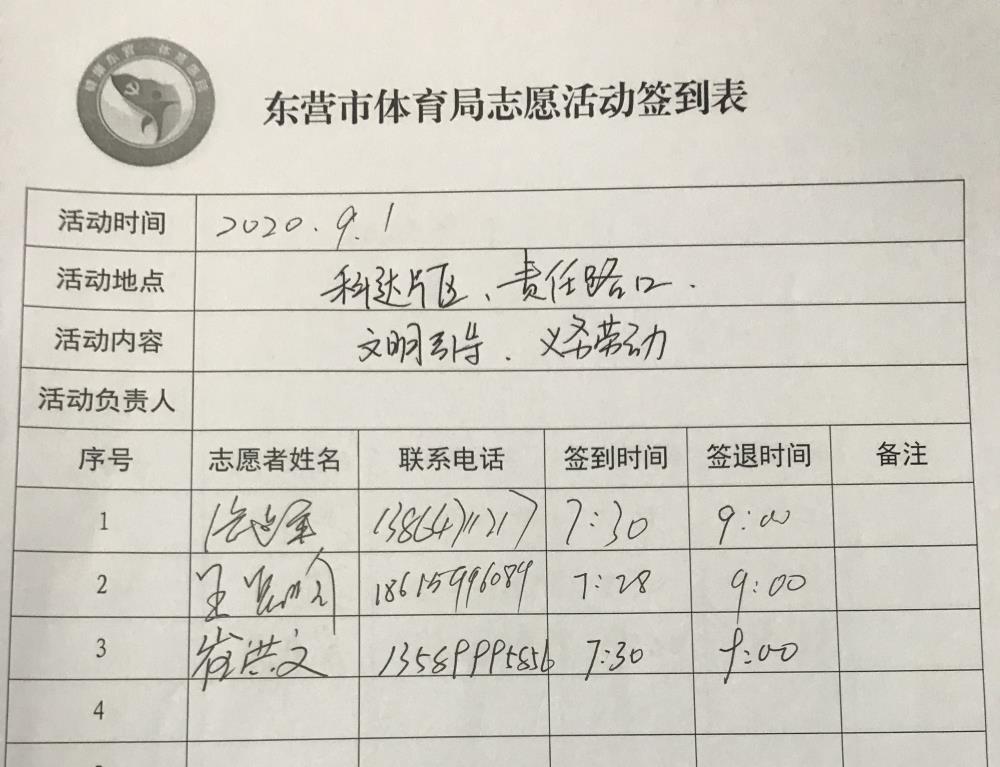 东营市体育局志愿活动签到表
活动时间 2020.9.1
活动地点 科达片区、责任路口.
活动内容 文明引导、义务劳动
活动负责人
序号 志愿者姓名 联系电话 签到时间 签退时间 备注
1 13864711217 7:30 9:00
2 王 18615996089 7:28 9:00
3 崔洪文 13589995856 7:30 9:00
4